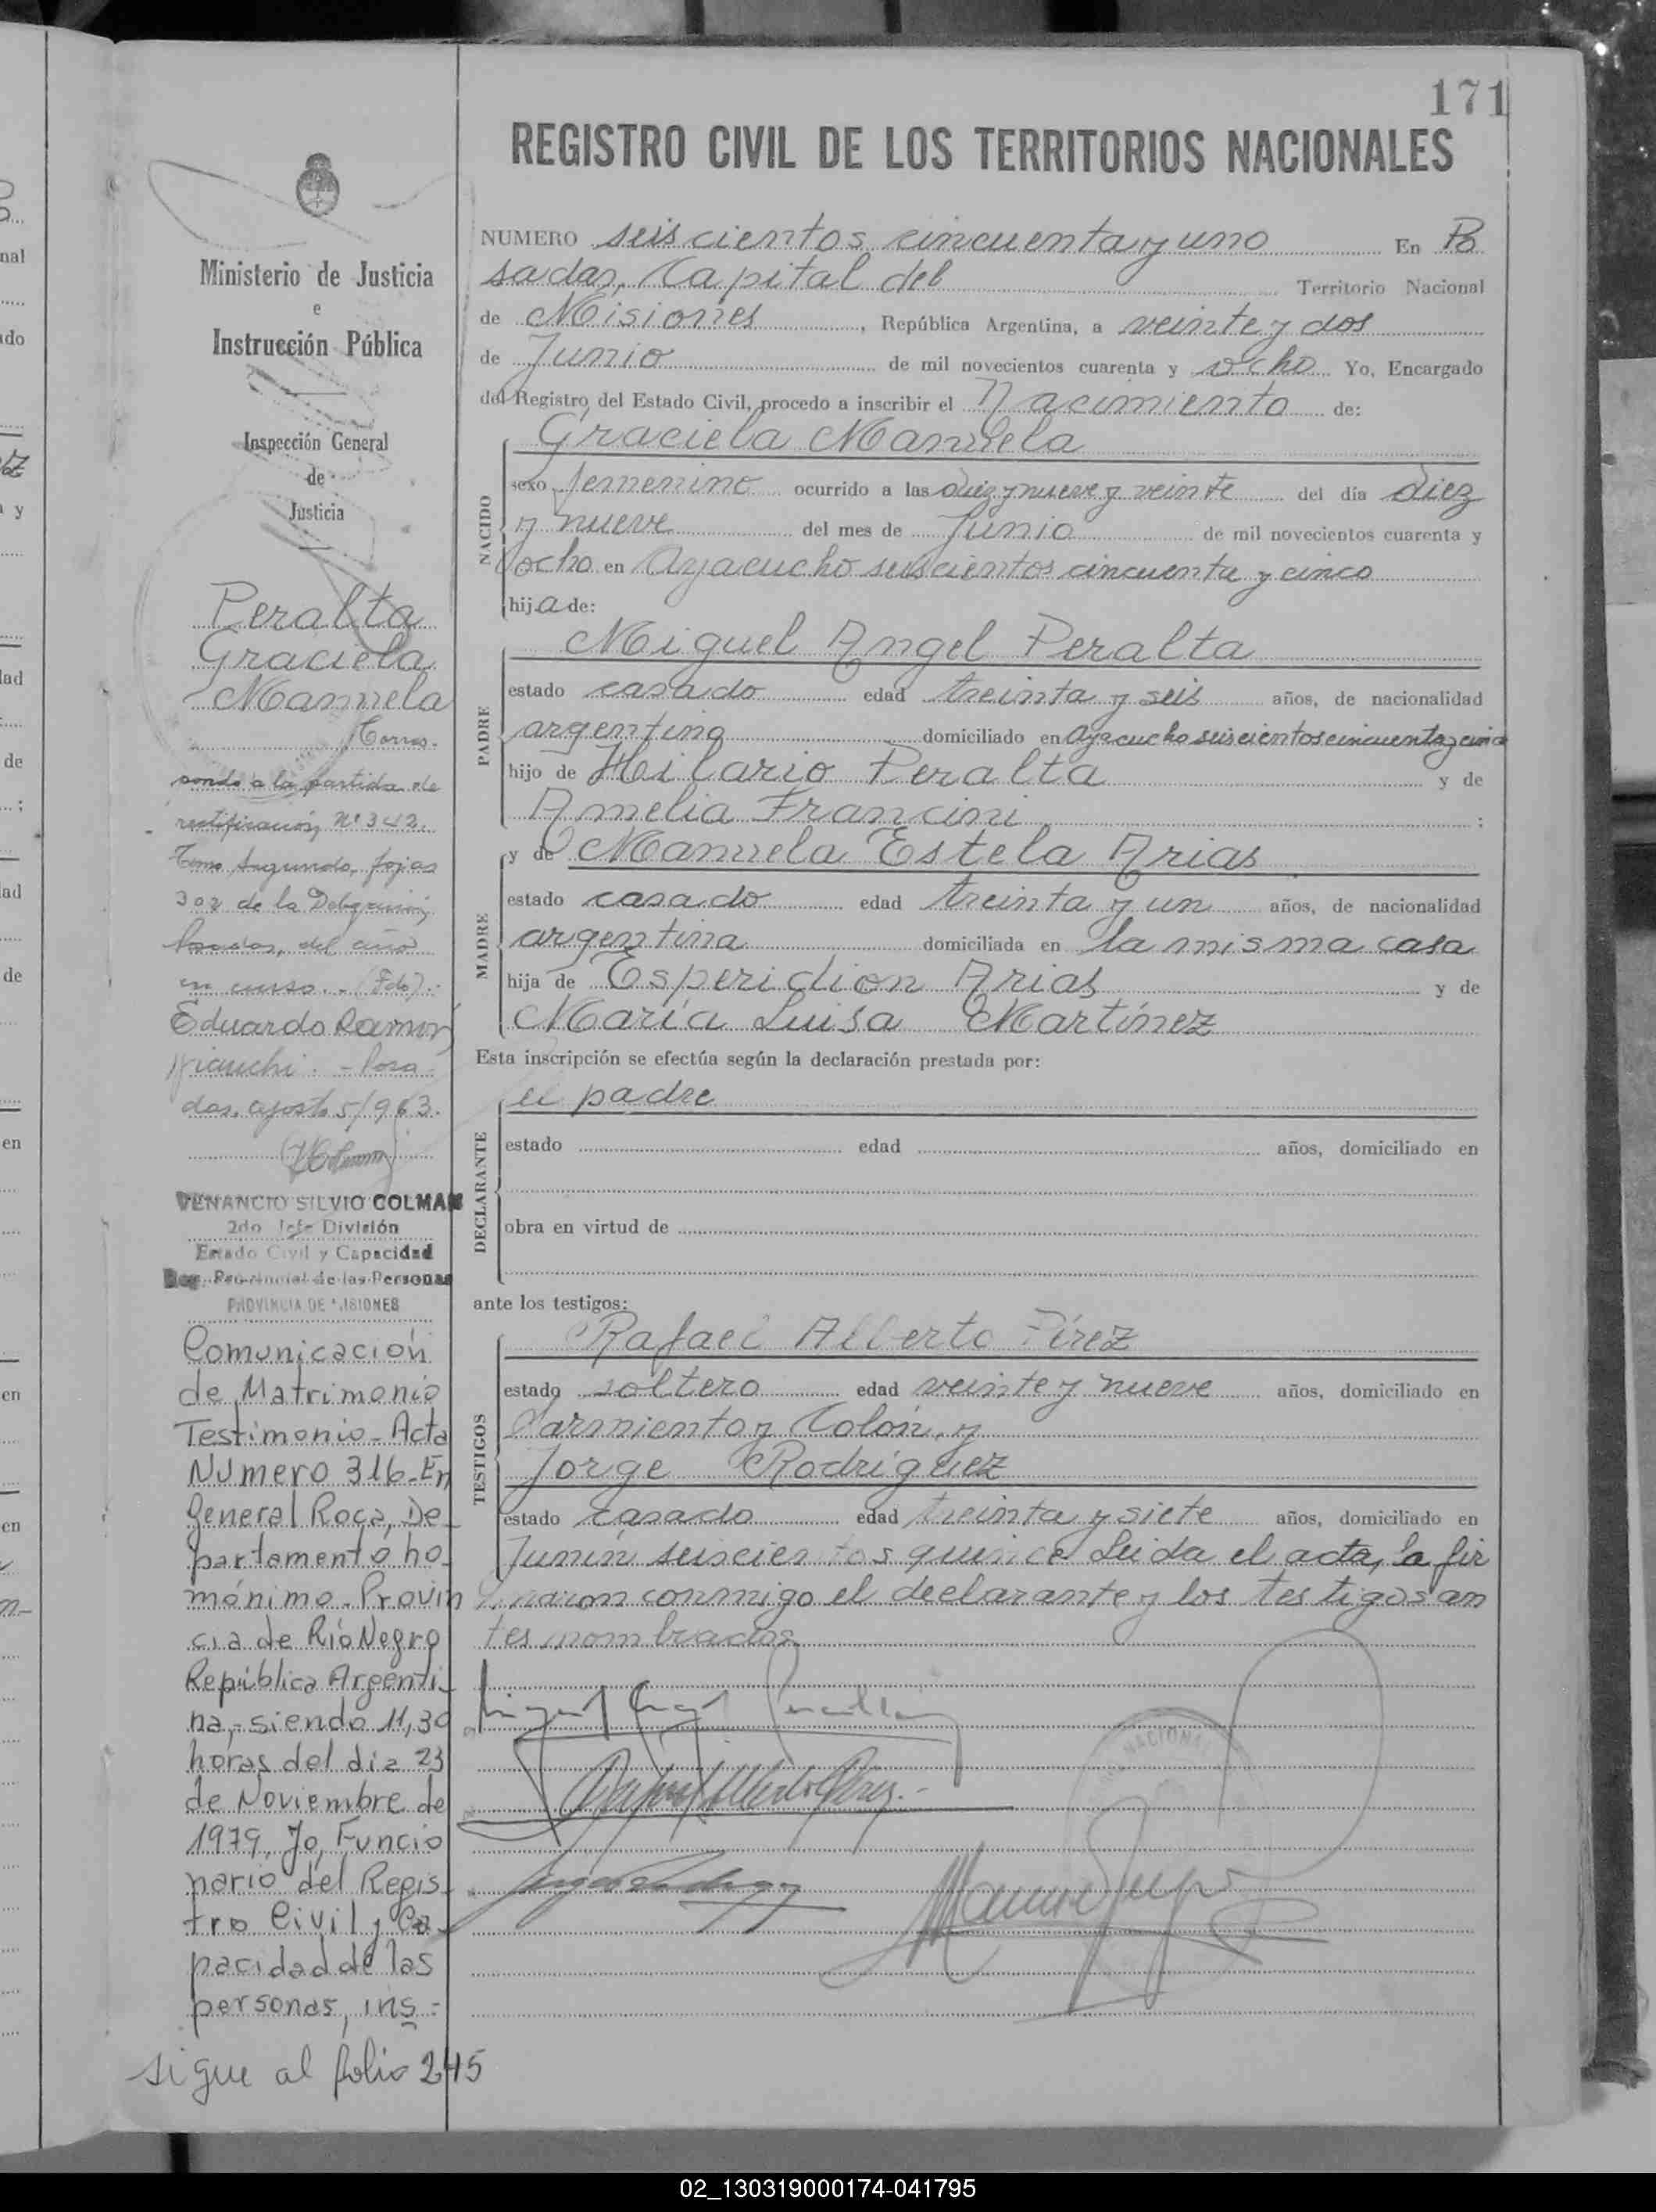 171
REGISTRO CIVIL DE LOS TERRITORIOS NACIONALES
Ministerio de Justicia
e
Instrucción Pública
Inspección General
de
Justicia
Peralta
Graciela
Manuela
Corres-
ponde a la partida de
rectificación Nº 342.
Tomo Segundo, fojas
302 de la Delegación
Posadas, del año
en curso. - (Fdo).:
Eduardo Ramon
Bianchi. - Posa-
das, agosto 5/963.
VENANCIO SILVIO COLMAN
2do Jefe División
Estado Civil y Capacidad
Reg. Provincial de las Personas
PROVINCIA DE MISIONES
Comunicación
de Matrimonio
Testimonio - Acta
Número 316- En
General Roca, De-
partamento ho-
mónimo. Provin
cia de Río Negro
República Argenti-
na,- siendo 11,30
horas del día 23
de Noviembre de
1979, Yo, Funcio
nario del Regis-
tro Civil y Ca-
pacidad de las
personas, ins-
sigue al folio 245
NUMERO seiscientos cincuenta y uno En Po
sadas, Capital del Territorio Nacional
de Misiones, República Argentina, a veinte y dos
de Junio de mil novecientos cuarenta y ocho Yo, Encargado
del Registro del Estado Civil, procedo a inscribir el Nacimiento de:
NACIDO
Graciela Manuela
sexo femenino ocurrido a las diez y nueve y veinte del día diez
y nueve del mes de Junio de mil novecientos cuarenta y
ocho en Ayacucho seiscientos cincuenta y cinco
hija de:
PADRE
Miguel Angel Peralta
estado casado edad treinta y seis años, de nacionalidad
argentina domiciliado en Ayacucho seiscientos cincuenta y cinco
hijo de Hilario Peralta y de
Amelia Francini :
MADRE
y de Manuela Estela Arias
estado casado edad treinta y un años, de nacionalidad
argentina domiciliada en la misma casa
hija de Esperidion Arias y de
María Luisa Martínez
Esta inscripción se efectúa según la declaración prestada por:
DECLARANTE
el padre
estado edad años, domiciliado en
obra en virtud de
ante los testigos:
TESTIGOS
Rafael Alberto Pírez
estado soltero edad veinte y nueve años, domiciliado en
Sarmiento y Colón, y
Jorge Rodríguez
estado casado edad treinta y siete años, domiciliado en
Junín seiscientos quince Leida el acta, la fir
maron conmigo el declarante y los testigos an
tes nombrados
NACIONAL
02_130319000174-041795